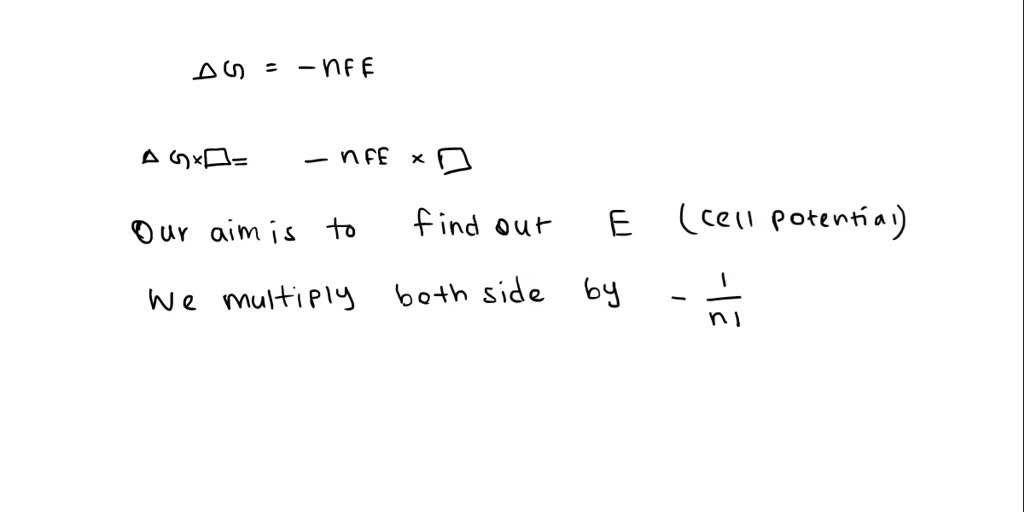 ΔG = -nFE
ΔG×□= -nFE × □
Our aim is to find out E (cell potential)
We multiply both side by - 1/n1